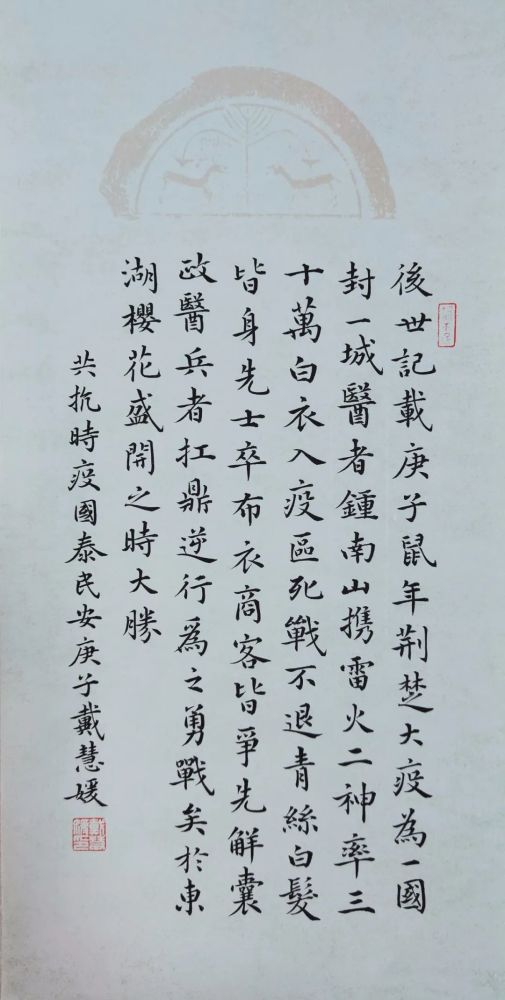 後世記載庚子鼠年荆楚大疫為一國
封一城醫者鍾南山携雷火二神率三
十萬白衣入疫區死戰不退青絲白髮
皆身先士卒布衣商客皆爭先解囊
政醫兵者扛鼎逆行為之勇戰矣於東
湖櫻花盛開之時大勝
共抗時疫國泰民安庚子戴慧媛